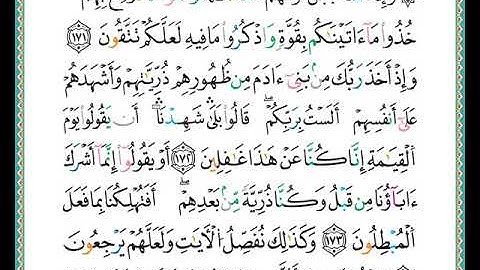 خُذُوا۟ مَآ ءَاتَيْنَٰكُم بِقُوَّةٍ وَٱذْكُرُوا۟ مَا فِيهِ لَعَلَّكُمْ تَتَّقُونَ ١٧١
وَإِذْ أَخَذَ رَبُّكَ مِنۢ بَنِىٓ ءَادَمَ مِن ظُهُورِهِمْ ذُرِّيَّتَهُمْ وَأَشْهَدَهُمْ
عَلَىٰٓ أَنفُسِهِمْ أَلَسْتُ بِرَبِّكُمْ ۖ قَالُوا۟ بَلَىٰ ۛ شَهِدْنَآ ۛ أَن يَقُولُوا۟ يَوْمَ
ٱلْقِيَٰمَةِ إِنَّا كُنَّا عَنْ هَٰذَا غَٰفِلِينَ ١٧٢ أَوْ يَقُولُوٓا۟ إِنَّمَآ أَشْرَكَ
ءَابَآؤُنَا مِن قَبْلُ وَكُنَّا ذُرِّيَّةً مِّنۢ بَعْدِهِمْ ۖ أَفَتُهْلِكُنَا بِمَا فَعَلَ
ٱلْمُبْطِلُونَ ١٧٣ وَكَذَٰلِكَ نُفَصِّلُ ٱلْءَايَٰتِ وَلَعَلَّهُمْ يَرْجِعُونَ